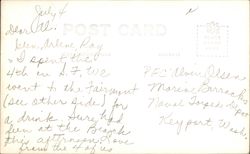 July 4
POST CARD
Dear Al.
Arlene, Ray
& I spent the
4th in S.F. We
went to the Fairmont
(see other side) for
a drink. Sure had
fun at the Beach
this afternoon. Love
from the 4 of us
P.F.C. Oliver Olson
Marine Barracks
Naval Torpedo
Keyport, Wash.